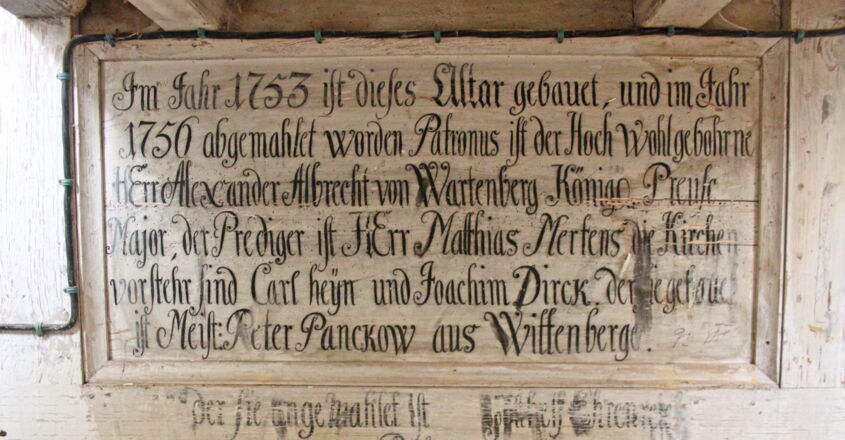 Im Jahr 1753 ist dieses Altar gebauet, und im Jahr
1756 abgemahlet worden Patronus ist der Hoch Wohlgebohrne
HErr Alexander Albrecht von Wartenberg Königs. Preuss
Major, der Prediger ist HErr Matthias Mertens die Kirchen
vorstehr sind Carl heyn und Joachim Dirck. der sie gebauet
ist Meist: Peter Panckow aus Wittenberge.
der sie angemahlet ist